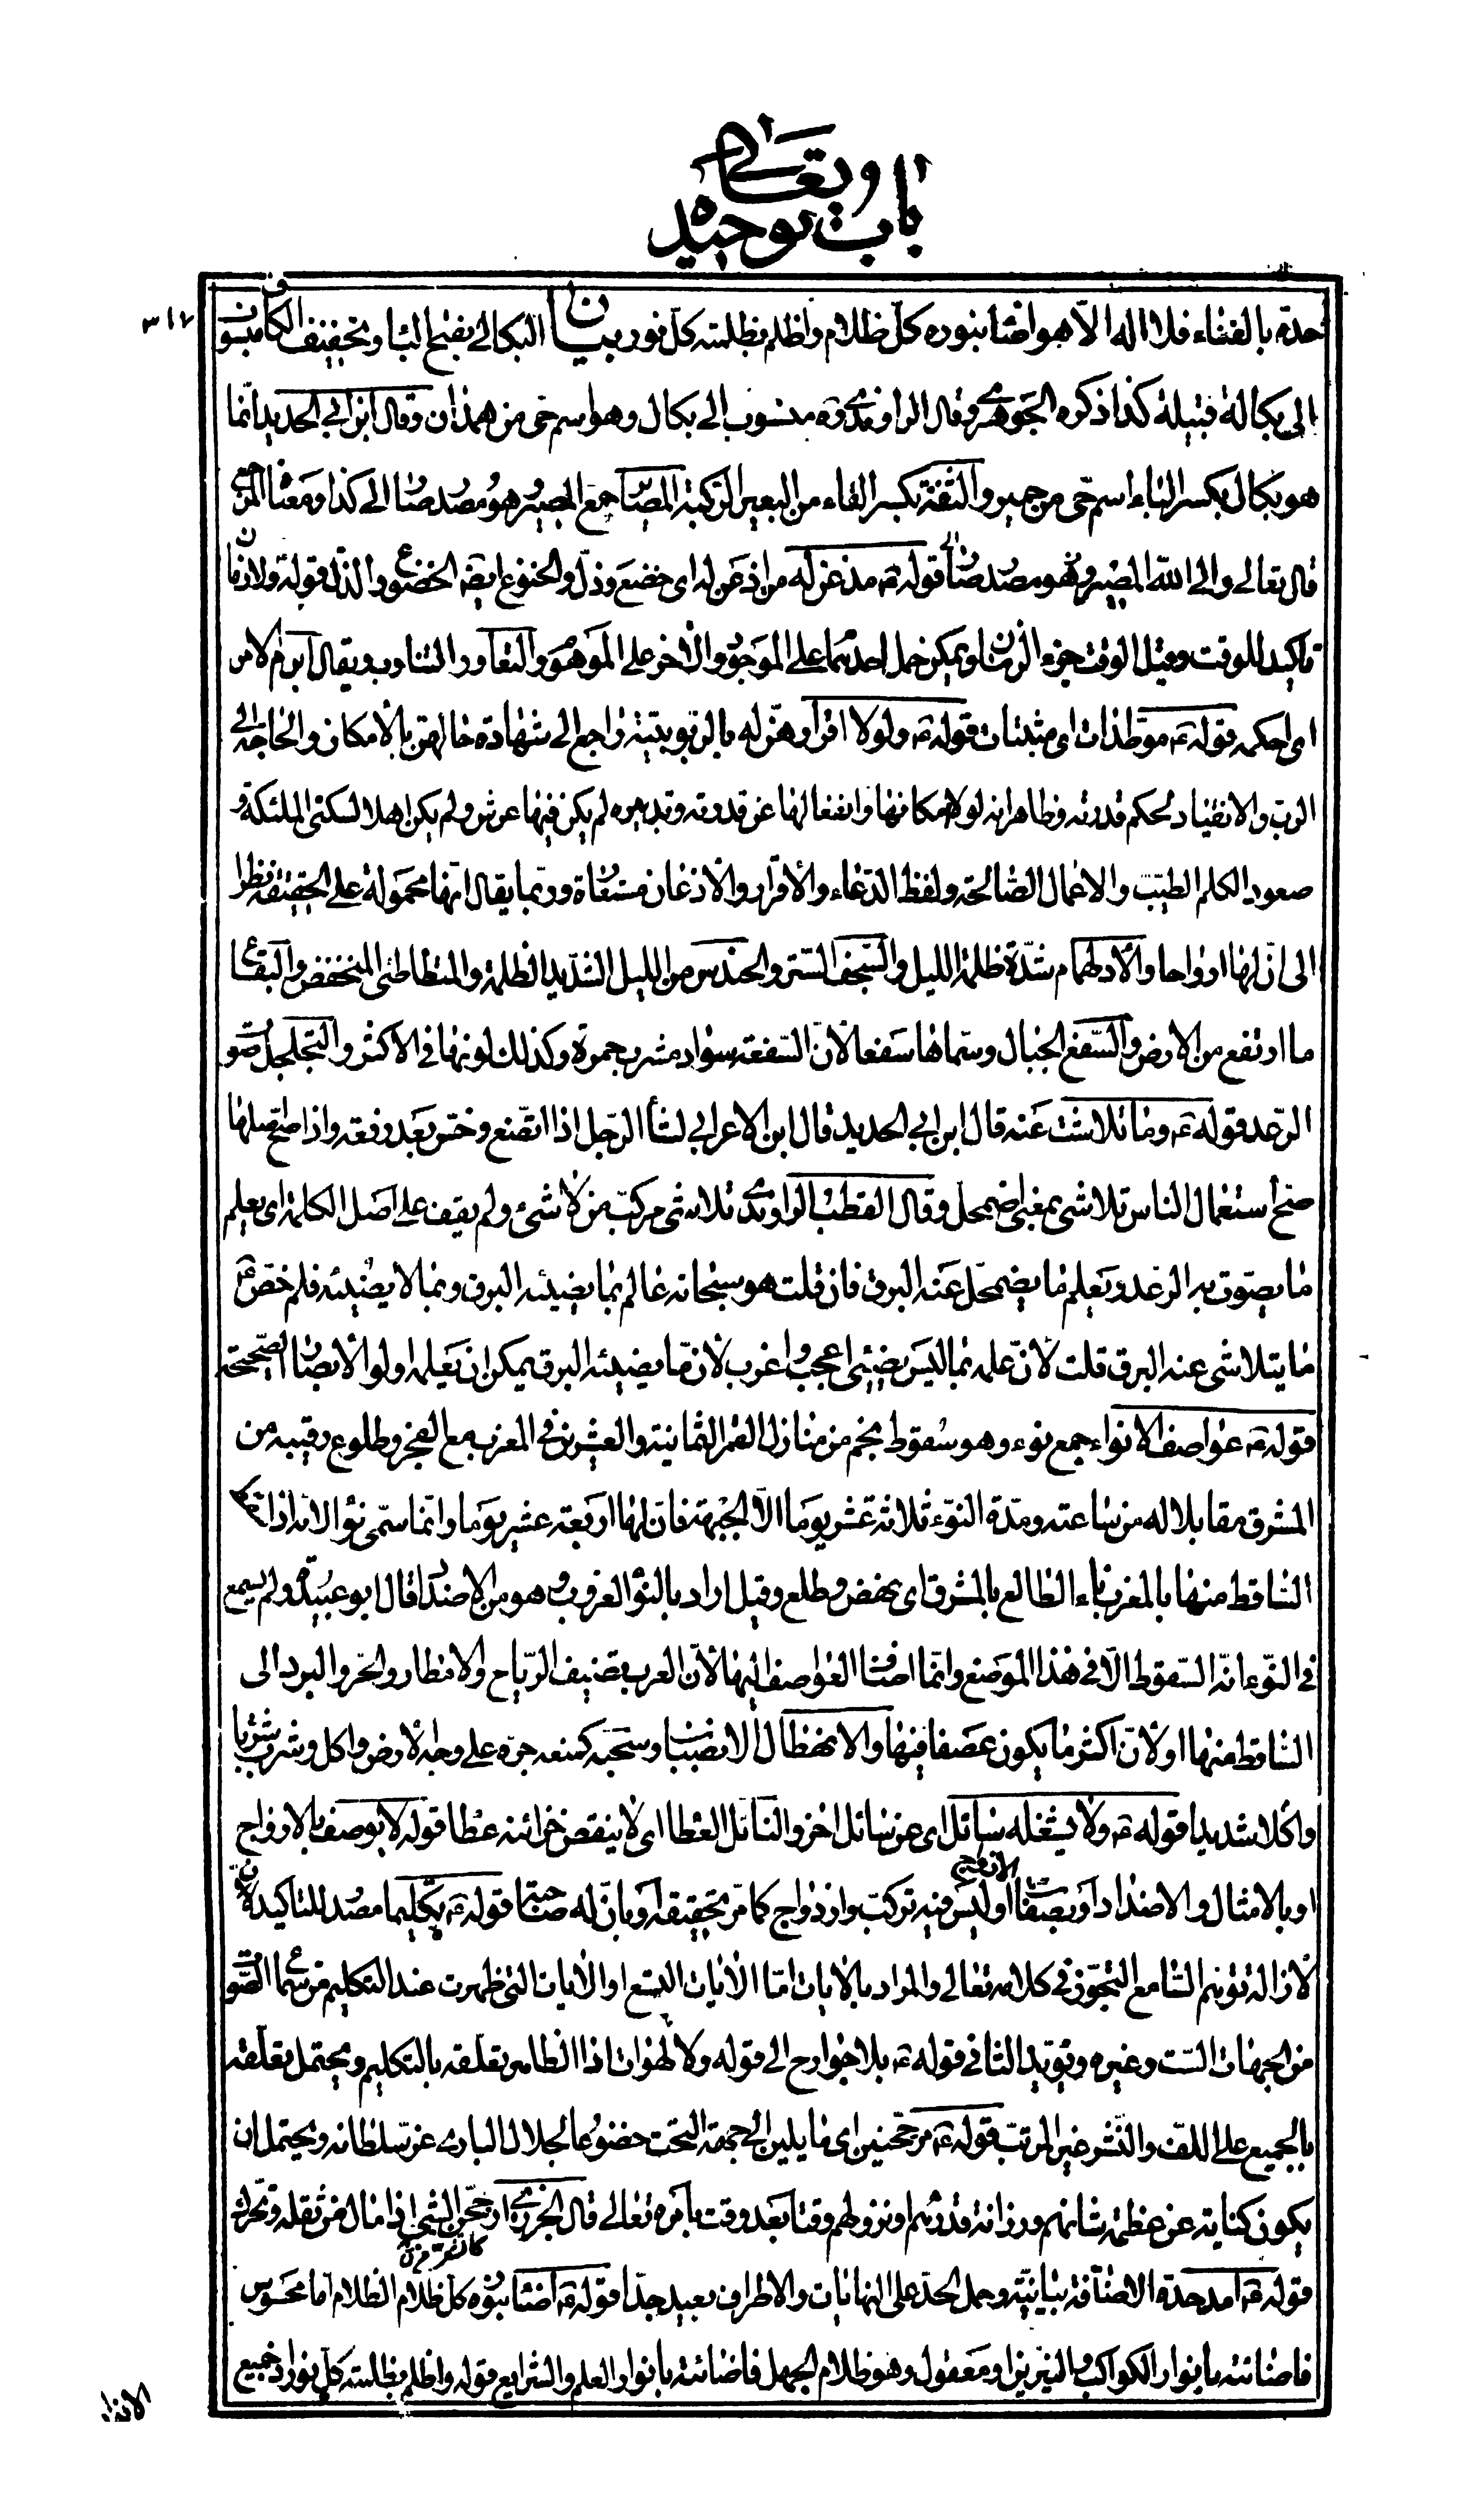 باب توحيده تعالى
٣١٧
حدّه بالفناء فلا اله الّا هو اضاء بنوره كلّ ظلام واظلم بظلمته كلّ نور بيان البكالي بفتح الباء وتخفيف الكاف منسوب
الى بكالة قبيلة كذا ذكره الجوهري وقال الراوندي ره منسوب الى بكال وهو اسم حى من همدان وقال ابن ابي الحديد انّما
هو بكال بكسر الباء اسم حى من حمير والثفنة بكسر الفاء من البعير الركبة المصاير جمع المصير وهو مصدر صار الى كذا ومعناه المرجع
قال تعالى والى الله المصير وهو مصدر صار قوله ع مذعن له من اذعن له اى خضع وذلّ والخنوع ايضا الخضوع والذلّ قوله ولا زمان
تاكيد للوقت وقيل الوقت جزء الزمان ويمكن حمل احدهما على الموجود والاخر على الموهوم والتعاور والتناوب ويقال ابرم الامر
اى احكمه قوله ع موطدات اى مثبتات قوله ع ولولا اقرارهنّ له بالربوبيّة راجع الى شهادة حالهنّ بالامكان والحاجة الى
الربّ والانقياد لحكم قدرته وظاهر انه لولا امكانها وانفعالها عن قدرته وتدبيره لم يكن فيها عرش ولم يكن اهلا لسكنى الملئكة و
صعود الكلم الطيّب والاعمال الصّالحة ولفظ الدعاء والاقرار والاذعان مستعارة وربما يقال انّها محمولة على الحقيقة نظرا
الى انّ لها ارواحا والادلهمام شدّة ظلمة الليل والسّجف السّتر والحندس من الليل الشديد الظلمة والمتطاطئ المنخفض واليفاع
ما ارتفع من الارض والسّفع الجبال وسمّاها سفعا لانّ السّفعة سواد مشرب حمرة وكذلك لونها فى الاكثر والتجلجل صوت
الرّعد قوله ع وما تلاشت عنه قال ابن ابي الحديد قال ابن الاعرابي لشأ الرّجل اذا اتّضع وخسّ بعد رفعه واذا صحّ اصلها
صحّ استعمال الناس تلاشى بمعنى اضمحلّ وقال القطب الراوندي تلاشى مركّب من لا شئ ولم يقف على اصل الكلمة اى يعلم
ما يصوّت به الرّعد ويعلم ما يضمحلّ عنه البرق فان قلت هو سبحانه عالم بما يضيئه البرق وبما لا يضيئه فلم خصّ ع
ما يتلاشى عنه البرق قلت لانّ علمه بما ليس يضيئ اعجب واغرب لانّ ما يضيئه البرق يمكن ان يعلمه اولوا الابصار الصّحيحة
قوله ع عواصف الانواء جمع نوء وهو سقوط نجم من منازل القمر الثمانية والعشرين فى المغرب مع الفجر وطلوع رقيبه من
المشرق مقابلا له من ساعته ومدّة النوء ثلاثة عشر يوما الّا الجبهة فانّ لها اربعة عشر يوما وانّما سمّى نوء الانّه اذا سقط
الساقط منها بالمغرب ناء الطالع بالمشرق اى نهض وطلع وقيل اراد بالنوء الغروب وهو من الاضداد قال ابو عبيدة ولم يسمع
فى النّوء انّه السّقوط الّا فى هذا الموضع وانّما اضاف العواصف اليها لانّ العرب تضيف الرّياح والامطار والحرّ والبرد الى
الساقط منها او لانّ اكثر ما يكون عصفا فيها والانهطال الانصباب وسحبه كمنعه جرّه على وجه الارض واكل وشرب شربا
واكلا شديدا قوله ع ولا يشغله سائل اى عن سائل اخر والنائل العطاء اى لا ينقص خزائنه عطا قوله لا يوصف بالازواج
او بالامثال والاضداد او بصفات الازواج او ليس فيه تركّب وازدواج كما مرّ تحقيقه او بانّ له صاحبة قوله ع تكليما مصدر للتاكيد لان
لازالة توهّم السّامع التجوّز فى كلامه تعالى والمراد بالايات امّا الايات التسع او الايات التى ظهرت عند التكليم من سماع الصّوت
من الجهات الستّ وغيره ويؤيد الثاني قوله ع بلا جوارح الى قوله ولا لهوات اذ الظاهر تعلّقه بالتكليم ويحتمل تعلّقه
بالجميع على اللف والنّشر غير المرتب قوله ع مرجحنّين اى مايلين الى جهة التحت خضوعا لجلال البارى عزّ سلطانه ويحتمل ان
يكون كناية عن عظمة شانهم ورزانة قدرهم او نزولهم وقتا بعد وقت بامره تعالى قال الجزري ارجحنّ الشئ اذا مال من ثقله وتحرك
قوله ع امد حدّه الاضافة بيانيّة وحمل الحدّ على النهايات والاطراف كما تعرف من بعيد جدّا قوله ع اضاء بنوره كلّ ظلام الظلام امّا محسوس
فاضائته بانوار الكواكب والنيرين او معقول وهو ظلام الجهل فاضائته بانوار العلم والشرايع قوله واظلم بظلمته كلّ نور اذ جميع
الانوار